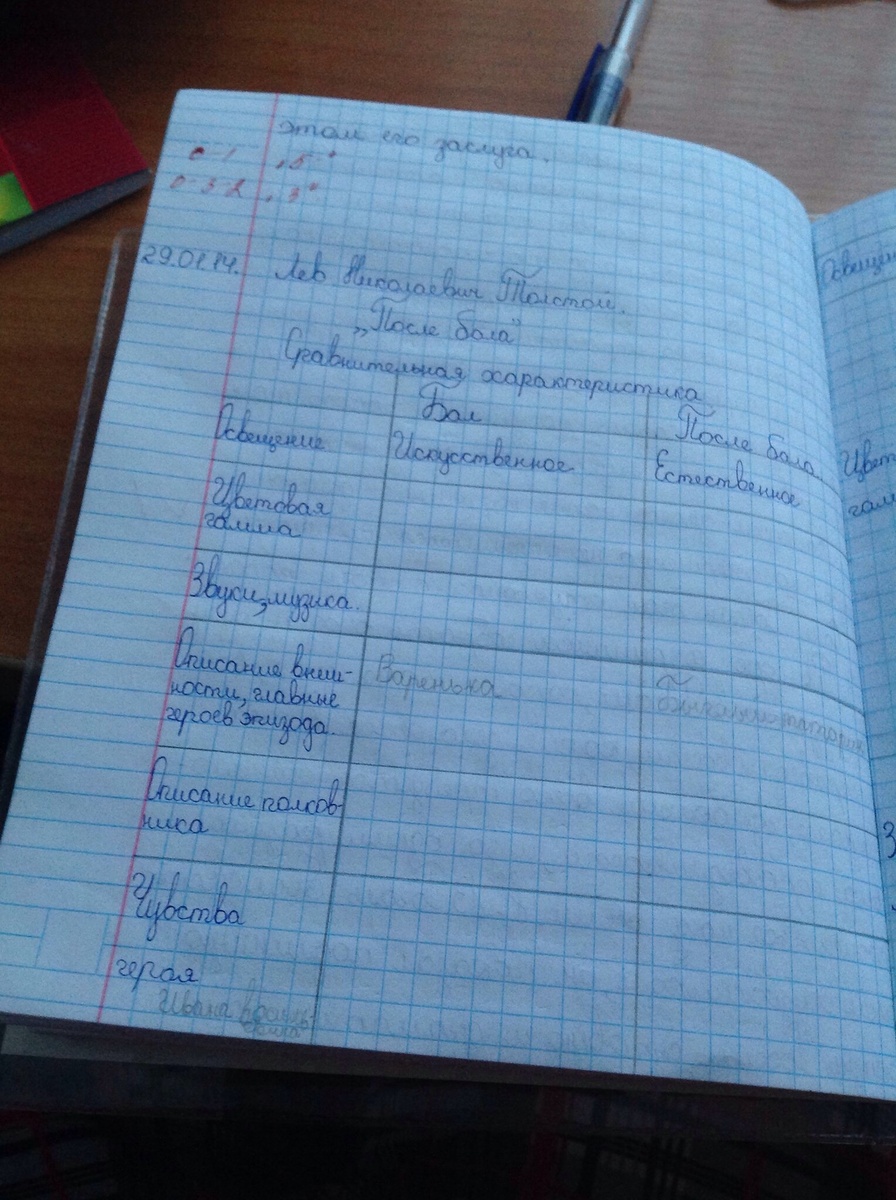 этом его заслуга.
0-1 „5"
0-3-2 „3"
29.01.14. Лев Николаевич Толстой.
„После бала"
Сравнительная характеристика
Бал После бала
Освещение Искусственное Естественное
Цветовая
гамма
Звуки, музыка.
Описание внеш- Варенька
ности, главные
героев эпизода.
Описание полков-
ника
Чувства
героя
Ивана Василь-
Освещен
Цвет
гам
З